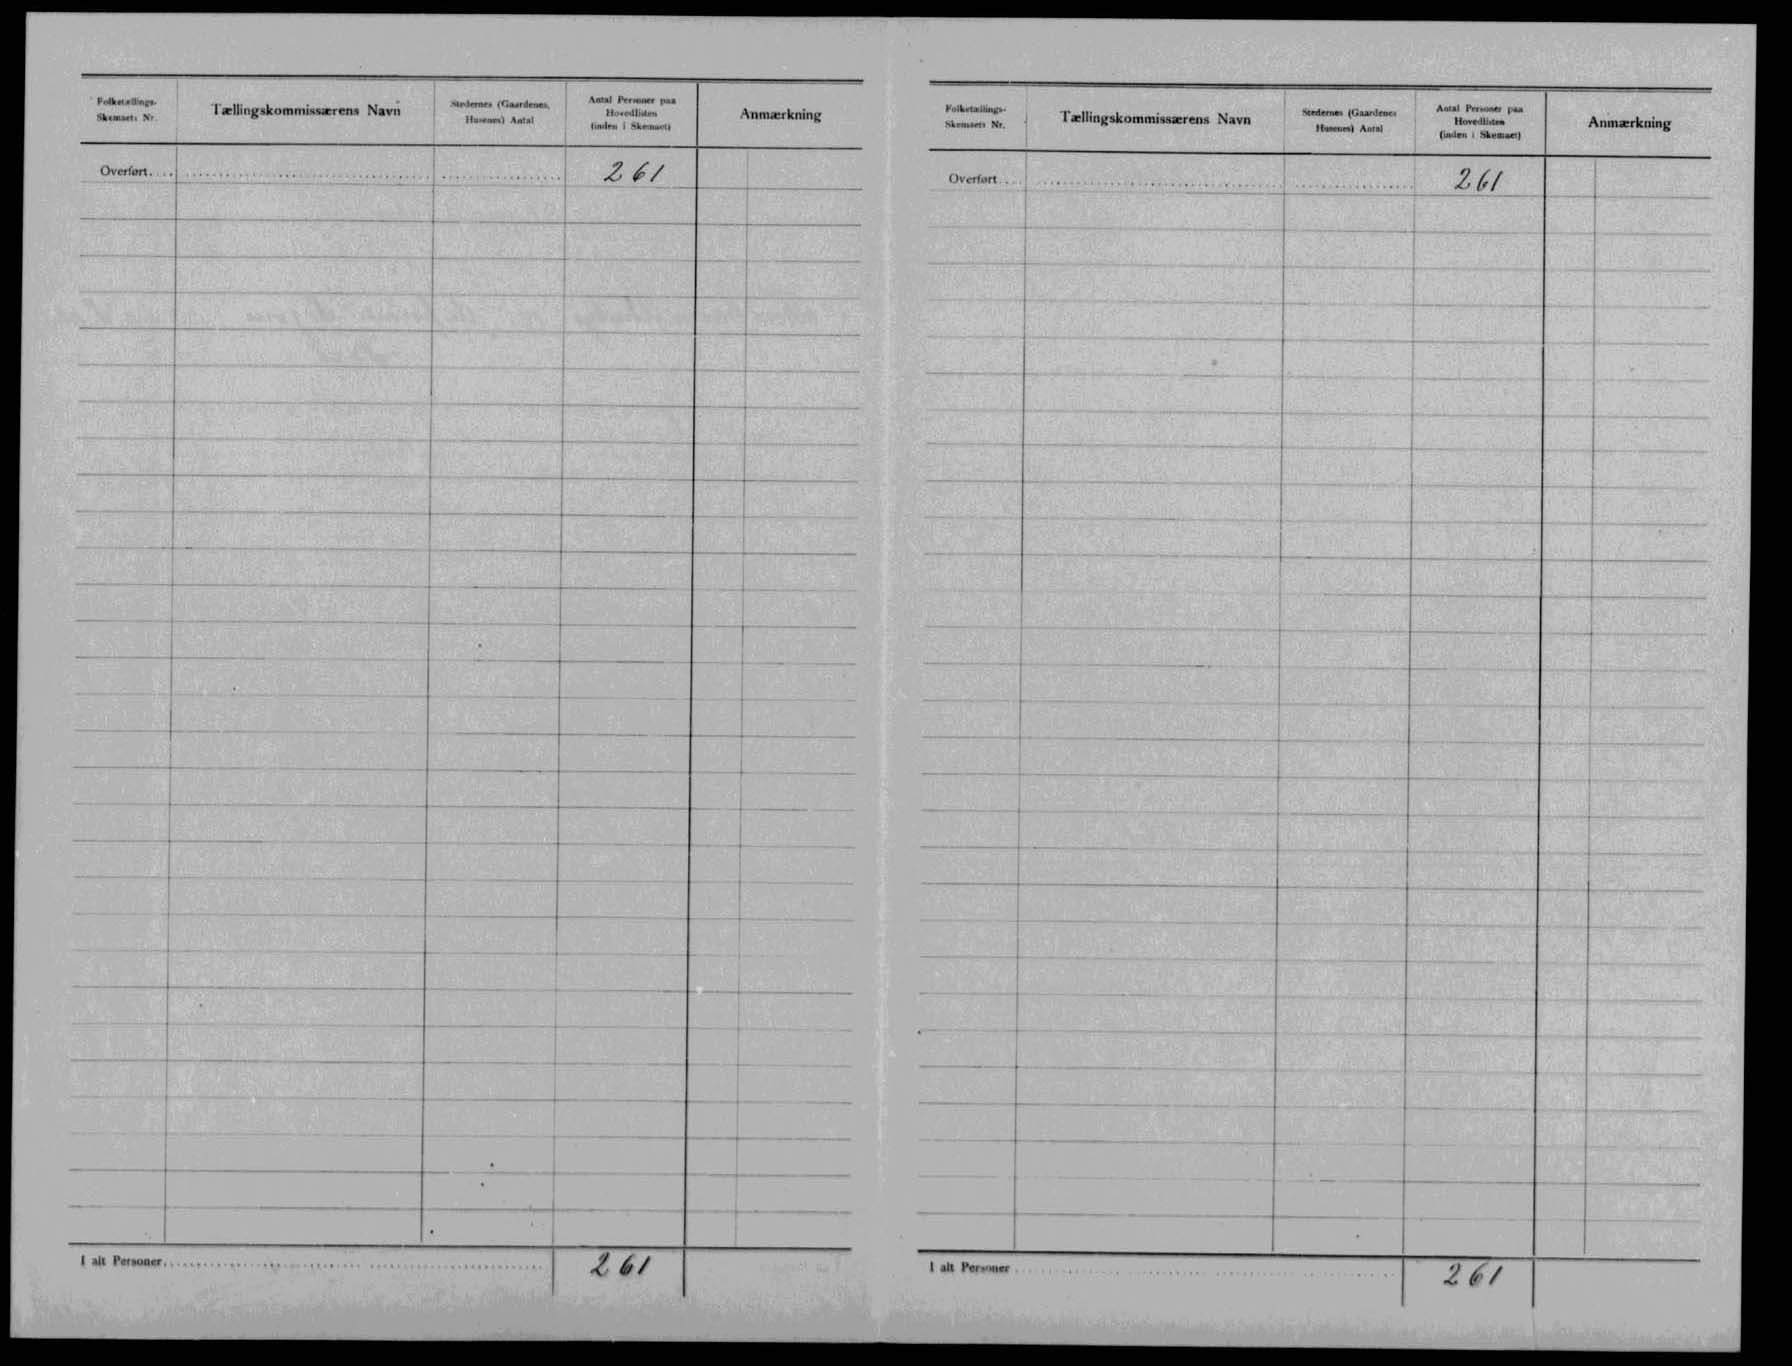 Folketællings-
Skemaets Nr.
Tællingskommissærens Navn
Stedernes (Gaardenes,
Husenes) Antal
Antal Personer paa
Hovedlisten
(inden i Skemaet)
Anmærkning
Overført.... 261
I alt Personer 261
Folketællings-
Skemaets Nr.
Tællingskommissærens Navn
Stedernes (Gaardenes
Husenes) Antal
Antal Personer paa
Hovedlisten
(inden i Skemaet)
Anmærkning
Overført.... 261
I alt Personer 261